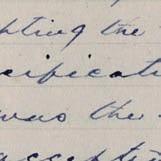 pting the
cificati
was the
accepta